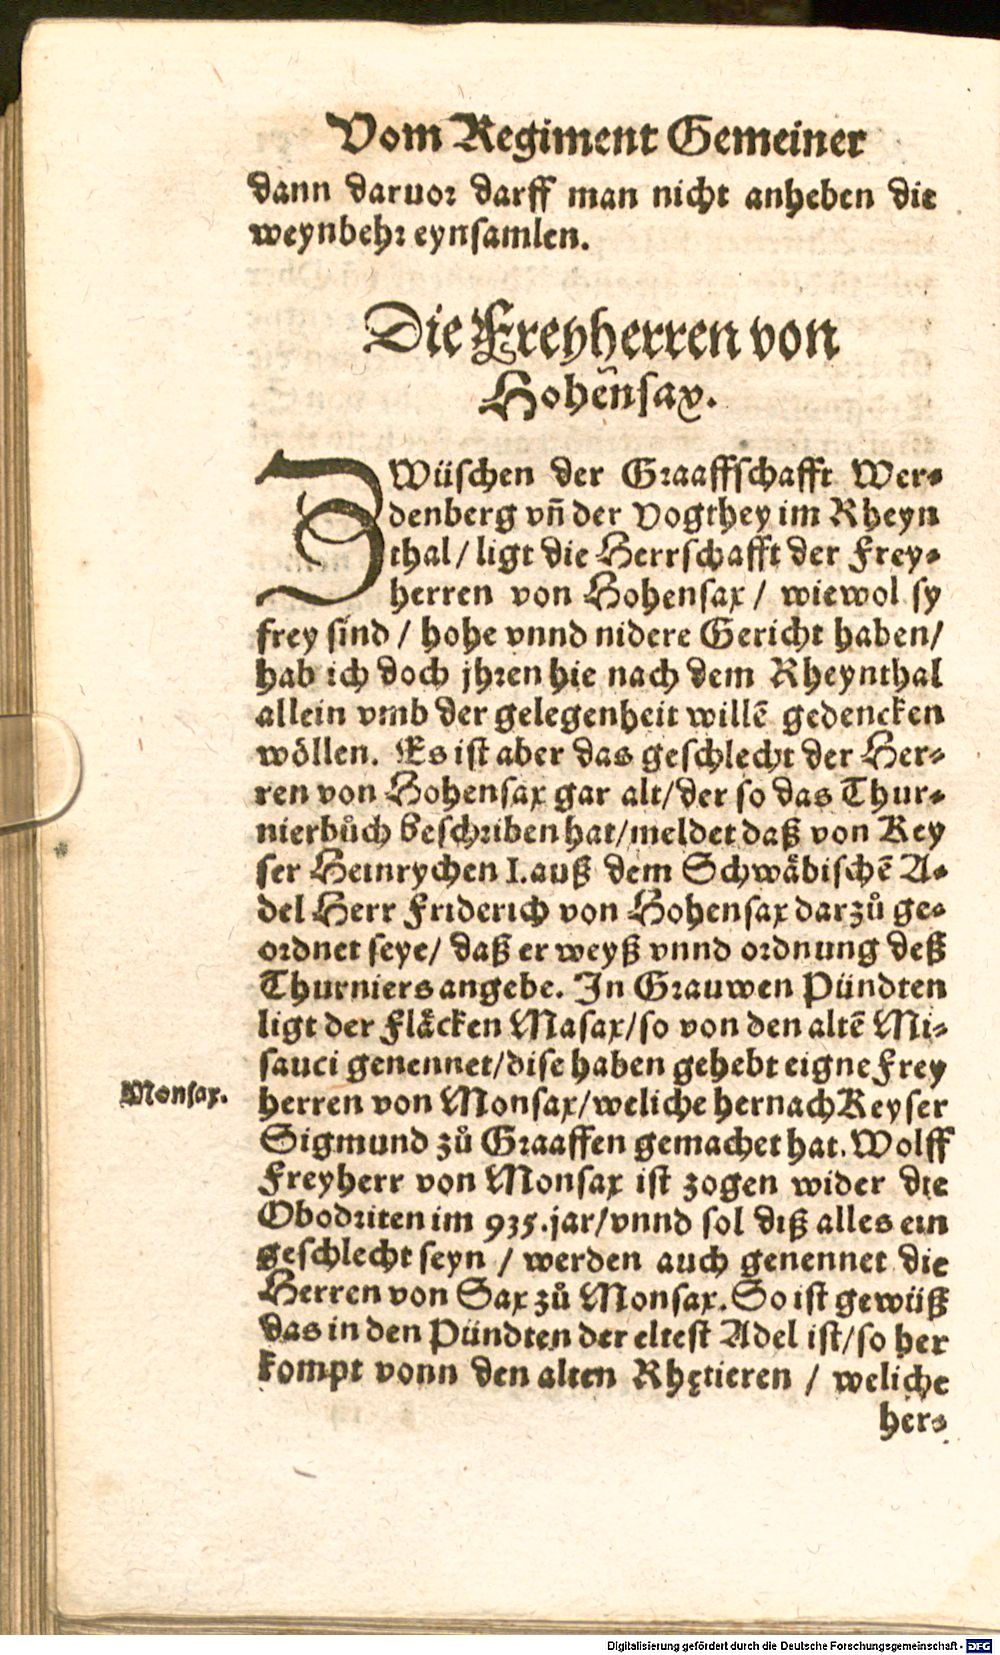 Vom Regiment Gemeiner
dann daruor darff man nicht anheben die
weynbehr eynsamlen.
Die Freyherren von
Hohen̄sax.
ZWüschen der Graaffschafft Wer-
denberg vñ der Vogthey im Rheyn
thal / ligt die Herrschafft der Frey-
herren von Hohensax / wiewol sy
frey sind / hohe vnnd nidere Gericht haben/
hab ich doch jhren hie nach dem Rheynthal
allein vmb der gelegenheit willē gedencken
wöllen. Es ist aber das geschlecht der Her-
ren von Hohensax gar alt/der so das Thur-
nierbůch beschriben hat/meldet daß von Key
ser Heinrychen I. auß dem Schwäbischē A-
del Herr Friderich von Hohensax darzů ge-
ordnet seye/ daß er weyß vnnd ordnung deß
Thurniers angebe. In Grauwen Pündten
ligt der Fläcken Masax/so von den altē Mi-
sauci genennet/dise haben gehebt eigne Frey
Monsax.
herren von Monsax/weliche hernach Keyser
Sigmund zů Graaffen gemachet hat. Wolff
Freyherr von Monsax ist zogen wider die
Obodriten im 935. jar/vnnd sol diß alles ein
geschlecht seyn / werden auch genennet die
Herren von Sax zů Monsax. So ist gewüß
das in den Pündten der eltest Adel ist/so her
kompt vonn den alten Rhętieren / weliche
her-
Digitalisierung gefördert durch die Deutsche Forschungsgemeinschaft - DFG